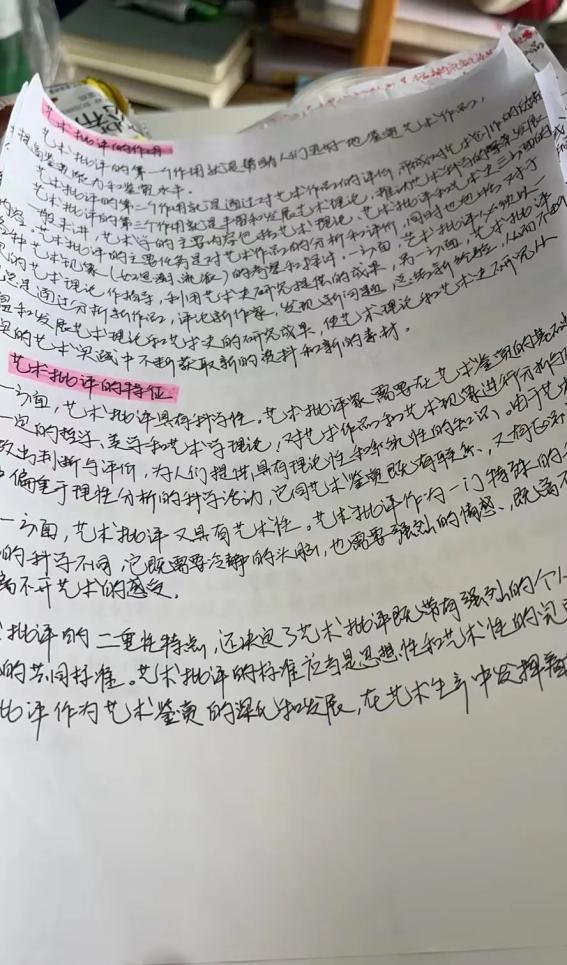 艺术批评的作用
艺术批评的第一个作用就是帮助人们更好地鉴赏艺术作品，
提高鉴赏能力和鉴赏水平。
艺术批评的第二个作用就是通过对艺术作品的评价，形成对艺术创作的
艺术批评的第三个作用就是丰富和发展艺术理论，推动艺术科学的繁荣发展
一般来讲，艺术学的主要内容包括艺术理论、艺术批评和艺术史三部
内容。艺术批评的主要任务是对艺术作品的分析和评价，同时也包括对于
各种艺术现象（如思潮、流派）的考察和探讨。一方面，艺术批评必须以
的艺术理论作指导，利用艺术史研究提供的成果，另一方面，艺术批评
总是通过分析新作品，评论新作家，发现新问题，总结新经验，从而不断
和发展艺术理论和艺术史的研究成果，使艺术理论和艺术史研究从
的艺术实践中不断获取新的资料和新的素材。
艺术批评的特征
一方面，艺术批评具有科学性。艺术批评家需要在艺术鉴赏的基础
一定的哲学、美学和艺术学理论，对艺术作品和艺术现象进行分析
做出判断与评价，为人们提供具有理论性和系统性的知识。由于艺术
偏重于理性分析的科学活动，它同艺术鉴赏既有联系，又有区
一方面，艺术批评又具有艺术性。艺术批评作为一门特殊的
的科学不同，它既需要冷静的头脑，也需要强烈的情感，既离不
离不开艺术的感受。
批评的二重性特点，还决定了艺术批评既带有强烈的个
的共同标准。艺术批评的标准应当是思想性和艺术性的完
批评作为艺术鉴赏的深化和发展，在艺术生产中发挥着